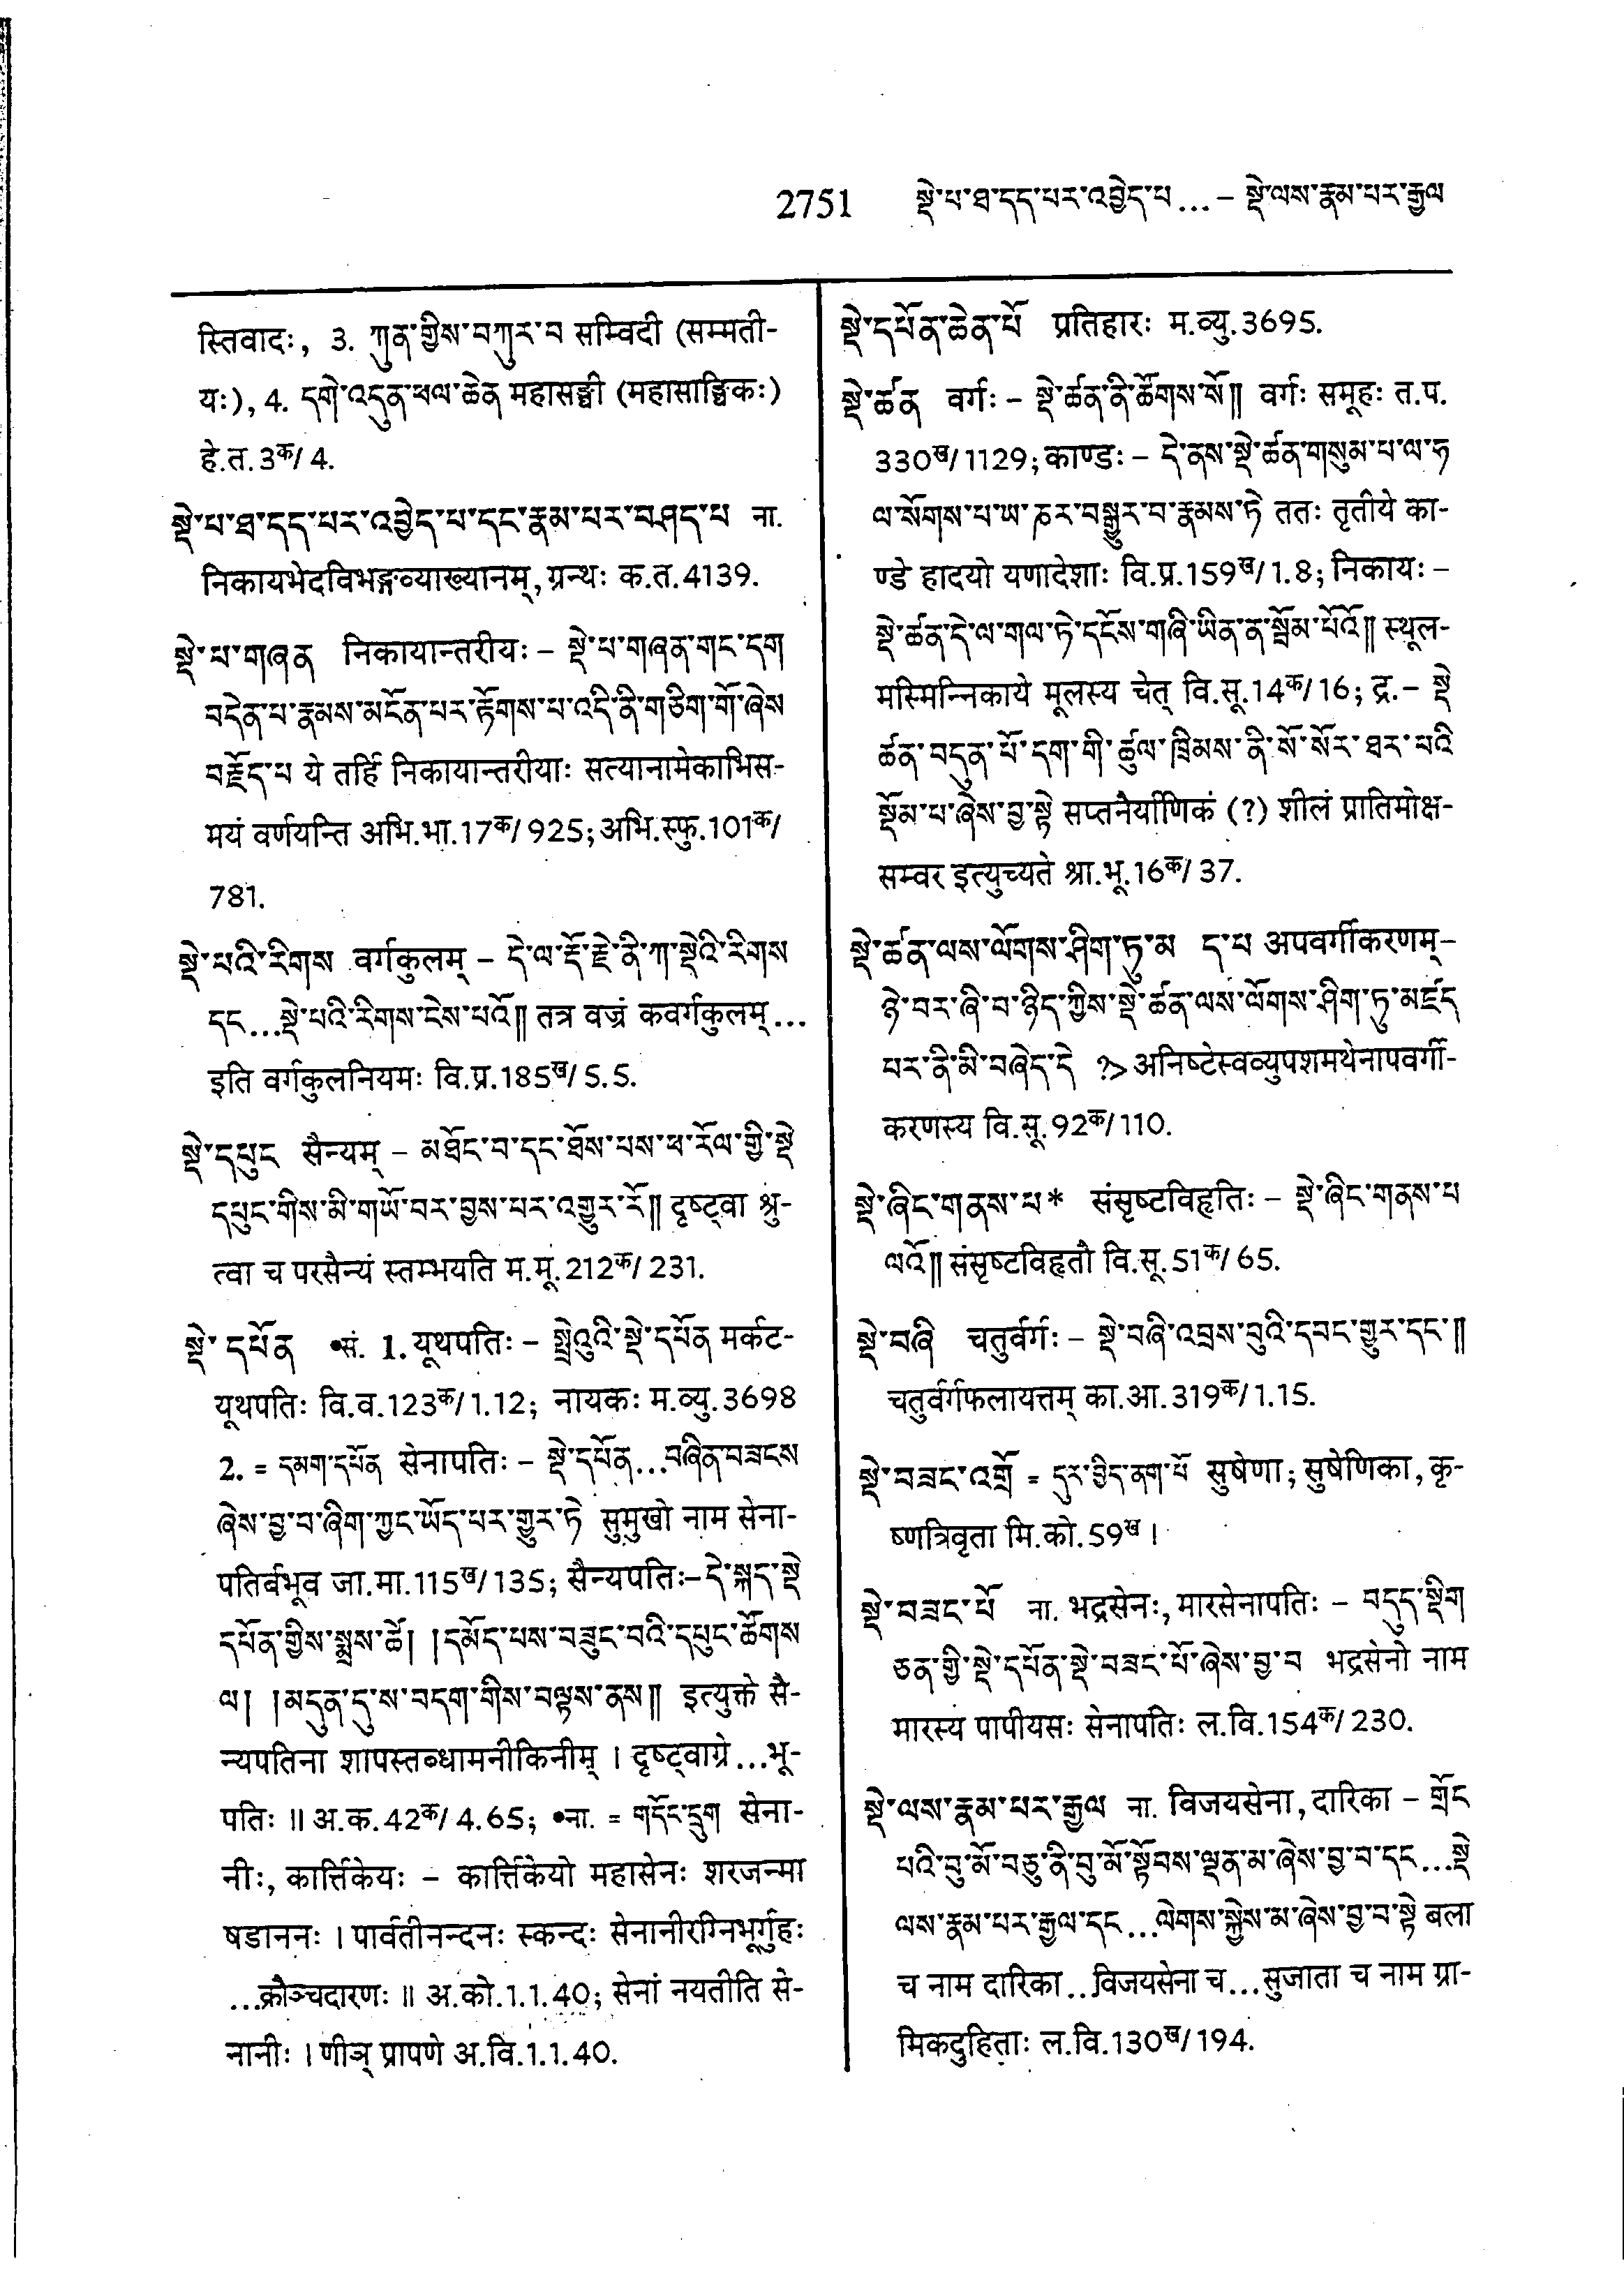 2751 སྡེ་པ་ཐ་དད་པར་འབྱེད་པ...– སྡེ་ལས་རྣམ་པར་རྒྱལ
स्तिवादः, 3. ཀུན་གྱིས་བཀུར་བ सम्विदी (सम्मती-
यः), 4. དགེ་འདུན་ཕལ་ཆེན महासङ्घी (महासाङ्घिकः)
हे.त.3क/4.
སྡེ་པ་ཐ་དད་པར་འབྱེད་པ་དང་རྣམ་པར་བཤད་པ ना.
निकायभेदविभङ्गव्याख्यानम्, ग्रन्थः क.त.4139.
སྡེ་པ་གཞན निकायान्तरीयः – སྡེ་པ་གཞན་གང་དག
བདེན་པ་རྣམས་མངོན་པར་རྟོགས་པ་འདི་ནི་གཅིག་གོ་ཞེས
བརྗོད་པ ये तर्हि निकायान्तरीयाः सत्यानामेकाभिस-
मयं वर्णयन्ति अभि.भा.17क/925; अभि.स्फु.101क/
781.
སྡེ་པའི་རིགས वर्गकुलम् – དེ་ལ་རྡོ་རྗེ་ནི་ཀ་སྡེའི་རིགས
དང...སྡེ་པའི་རིགས་ངེས་པའོ།། तत्र वज्रं कवर्गकुलम्...
इति वर्गकुलनियमः वि.प्र.185ख/5.5.
སྡེ་དཔུང सैन्यम् – མཐོང་བ་དང་ཐོས་པས་ཕ་རོལ་གྱི་སྡེ
དཔུང་གིས་མི་གཡོ་བར་བྱས་པར་འགྱུར་རོ།། दृष्ट्वा श्रु-
त्वा च परसैन्यं स्तम्भयति म.मू.212क/231.
སྡེ་དཔོན •सं. 1. यूथपतिः – སྤྲེའུའི་སྡེ་དཔོན मर्कट-
यूथपतिः वि.व.123क/1.12; नायकः म.व्यु.3698
2. = དམག་དཔོན सेनापतिः – སྡེ་དཔོན...བཞིན་བཟངས
ཞེས་བྱ་བ་ཞིག་ཀྱང་ཡོད་པར་གྱུར་ཏེ सुमुखो नाम सेना-
पतिर्बभूव जा.मा.115ख/135; सैन्यपतिः– དེ་སྐད་སྡེ
དཔོན་གྱིས་སྨྲས་ཚེ། །དམོད་པས་བཟུང་བའི་དཔུང་ཚོགས
ལ། །མདུན་དུ་ས་བདག་གིས་བལྟས་ནས།། इत्युक्ते सै-
न्यपतिना शापस्तब्धामनीकिनीम् । दृष्ट्वाग्रे...भू-
पतिः ॥ अ.क.42क/4.65; •ना. = གདོང་དྲུག सेना-
नीः, कार्त्तिकेयः – कार्त्तिकेयो महासेनः शरजन्मा
षडाननः । पार्वतीनन्दनः स्कन्दः सेनानीरग्निभूर्गुहः
...क्रौञ्चदारणः ॥ अ.को.1.1.40; सेनां नयतीति से-
नानीः । णीञ् प्रापणे अ.वि.1.1.40.
སྡེ་དཔོན་ཆེན་པོ प्रतिहारः म.व्यु.3695.
སྡེ་ཚན वर्गः – སྡེ་ཚན་ནི་ཚོགས་སོ།། वर्गः समूहः त.प.
330ख/1129; काण्डः – དེ་ནས་སྡེ་ཚན་གསུམ་པ་ལ་ཧ
ལ་སོགས་པ་ཡ་ཎར་བསྒྱུར་བ་རྣམས་ཏེ ततः तृतीये का-
ण्डे हादयो यणादेशाः वि.प्र.159ख/1.8; निकायः –
སྡེ་ཚན་དེ་ལ་གལ་ཏེ་དངོས་གཞི་ཡིན་ན་སྦོམ་པོའོ།། स्थूल-
मस्मिन्निकाये मूलस्य चेत् वि.सू.14क/16; द्र.– སྡེ
ཚན་བདུན་པོ་དག་གི་ཚུལ་ཁྲིམས་ནི་སོ་སོར་ཐར་པའི
སྡོམ་པ་ཞེས་བྱ་སྟེ सप्तनैर्याणिकं (?) शीलं प्रातिमोक्ष-
सम्वर इत्युच्यते श्रा.भू.16क/37.
སྡེ་ཚན་ལས་ལོགས་ཤིག་ཏུ་མ ད་པ अपवर्गीकरणम्–
ཉེ་བར་ཞི་བ་ཉིད་ཀྱིས་སྡེ་ཚན་ལས་ལོགས་ཤིག་ཏུ་མཛད
པར་ནི་མི་བཞེད་དེ ?> अनिष्टेस्वव्युपशमथेनापवर्गी-
करणस्य वि.सू.92क/110.
སྡེ་ཞིང་གནས་པ* संसृष्टविहृतिः – སྡེ་ཞིང་གནས་པ
ལའོ།། संसृष्टविहृतौ वि.सू.51क/65.
སྡེ་བཞི चतुर्वर्गः – སྡེ་བཞི་འབྲས་བུའི་དབང་གྱུར་དང་།།
चतुर्वर्गफलायत्तम् का.आ.319क/1.15.
སྡེ་བཟང་འགྲོ = དུར་བྱིད་ནག་པོ सुषेणा; सुषेणिका, कृ-
ष्णत्रिवृता मि.को.59ख ।
སྡེ་བཟང་པོ ना. भद्रसेनः, मारसेनापतिः – བདུད་སྡིག
ཅན་གྱི་སྡེ་དཔོན་སྡེ་བཟང་པོ་ཞེས་བྱ་བ भद्रसेनो नाम
मारस्य पापीयसः सेनापतिः ल.वि.154क/230.
སྡེ་ལས་རྣམ་པར་རྒྱལ ना. विजयसेना, दारिका – གྲོང
པའི་བུ་མོ་བཅུ་ནི་བུ་མོ་སྟོབས་ལྡན་མ་ཞེས་བྱ་བ་དང...སྡེ
ལས་རྣམ་པར་རྒྱལ་དང...ལེགས་སྐྱེས་མ་ཞེས་བྱ་བ་སྟེ बला
च नाम दारिका...विजयसेना च...सुजाता च नाम ग्रा-
मिकदुहिताः ल.वि.130ख/194.